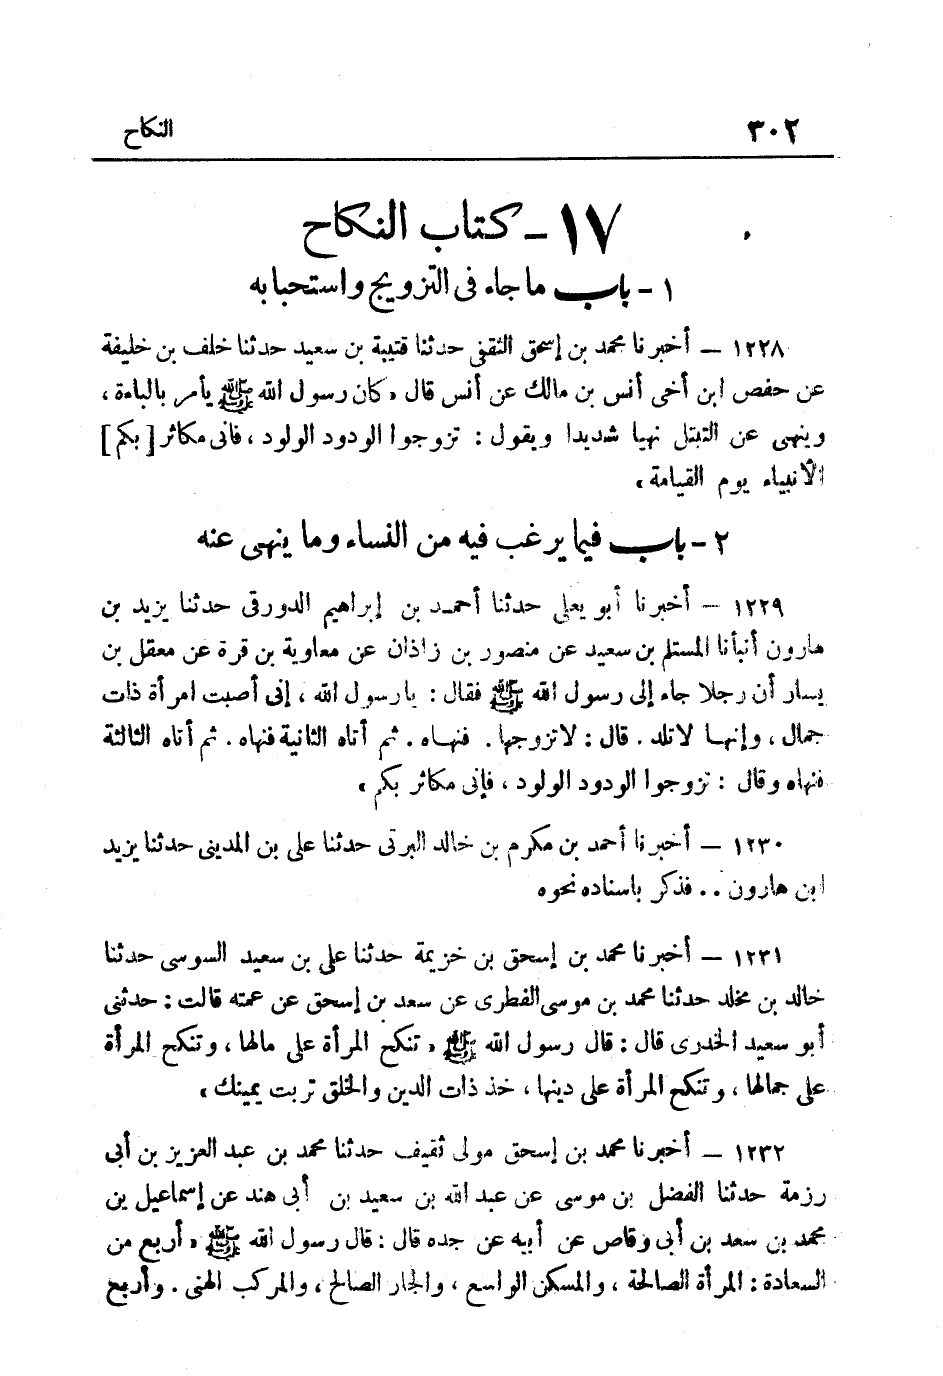 ٣٠٢ النكاح
١٧ - كتاب النكاح
١ - باب ما جاء فى التزويج واستحبابه
١٢٢٨ - أخبرنا محمد بن إسحق الثقفى حدثنا قتيبة بن سعيد حدثنا خلف بن خليفة
عن حفص ابن أخى أنس بن مالك عن أنس قال « كان رسول الله ﷺ يأمر بالباءة ،
وينهى عن التبتل نهيا شديدا ويقول : تزوجوا الودود الولود ، فانى مكاثر [ بكم ]
الأنبياء يوم القيامة »
٢ - باب فيما يرغب فيه من النساء وما ينهى عنه
١٢٢٩ - أخبرنا أبو يعلى حدثنا أحمد بن إبراهيم الدورقى حدثنا يزيد بن
هارون أنبأنا المستلم بن سعيد عن منصور بن زاذان عن معاوية بن قرة عن معقل بن
يسار أن رجلا جاء إلى رسول الله ﷺ فقال : يا رسول الله ، إنى أصبت امرأة ذات
جمال ، وإنها لا تلد . قال : لا تزوجها . فنهاه . ثم أتاه الثانية فنهاه . ثم أتاه الثالثة
فنهاه وقال : تزوجوا الودود الولود ، فإنى مكاثر بكم »
١٢٣٠ - أخبرنا أحمد بن مكرم بن خالد البرتى حدثنا على بن المدينى حدثنا يزيد
ابن هارون .. فذكر باسناده نحوه
١٢٣١ - أخبرنا محمد بن إسحق بن خزيمة حدثنا على بن سعيد السوسى حدثنا
خالد بن مخلد حدثنا محمد بن موسى الفطرى عن سعد بن إسحق عن عمته قالت : حدثنى
أبو سعيد الخدرى قال : قال رسول الله ﷺ « تنكح المرأة على مالها ، وتنكح المرأة
على جمالها ، وتنكح المرأة على دينها ، خذ ذات الدين والخلق تربت يمينك »
١٢٣٢ - أخبرنا محمد بن إسحق مولى ثقيف حدثنا محمد بن عبد العزيز بن أبى
رزمة حدثنا الفضل بن موسى عن عبد الله بن سعيد بن أبى هند عن إسماعيل بن
محمد بن سعد بن أبى وقاص عن أبيه عن جده قال : قال رسول الله ﷺ « أربع من
السعادة : المرأة الصالحة ، والمسكن الواسع ، والجار الصالح ، والمركب الهنى . وأربع